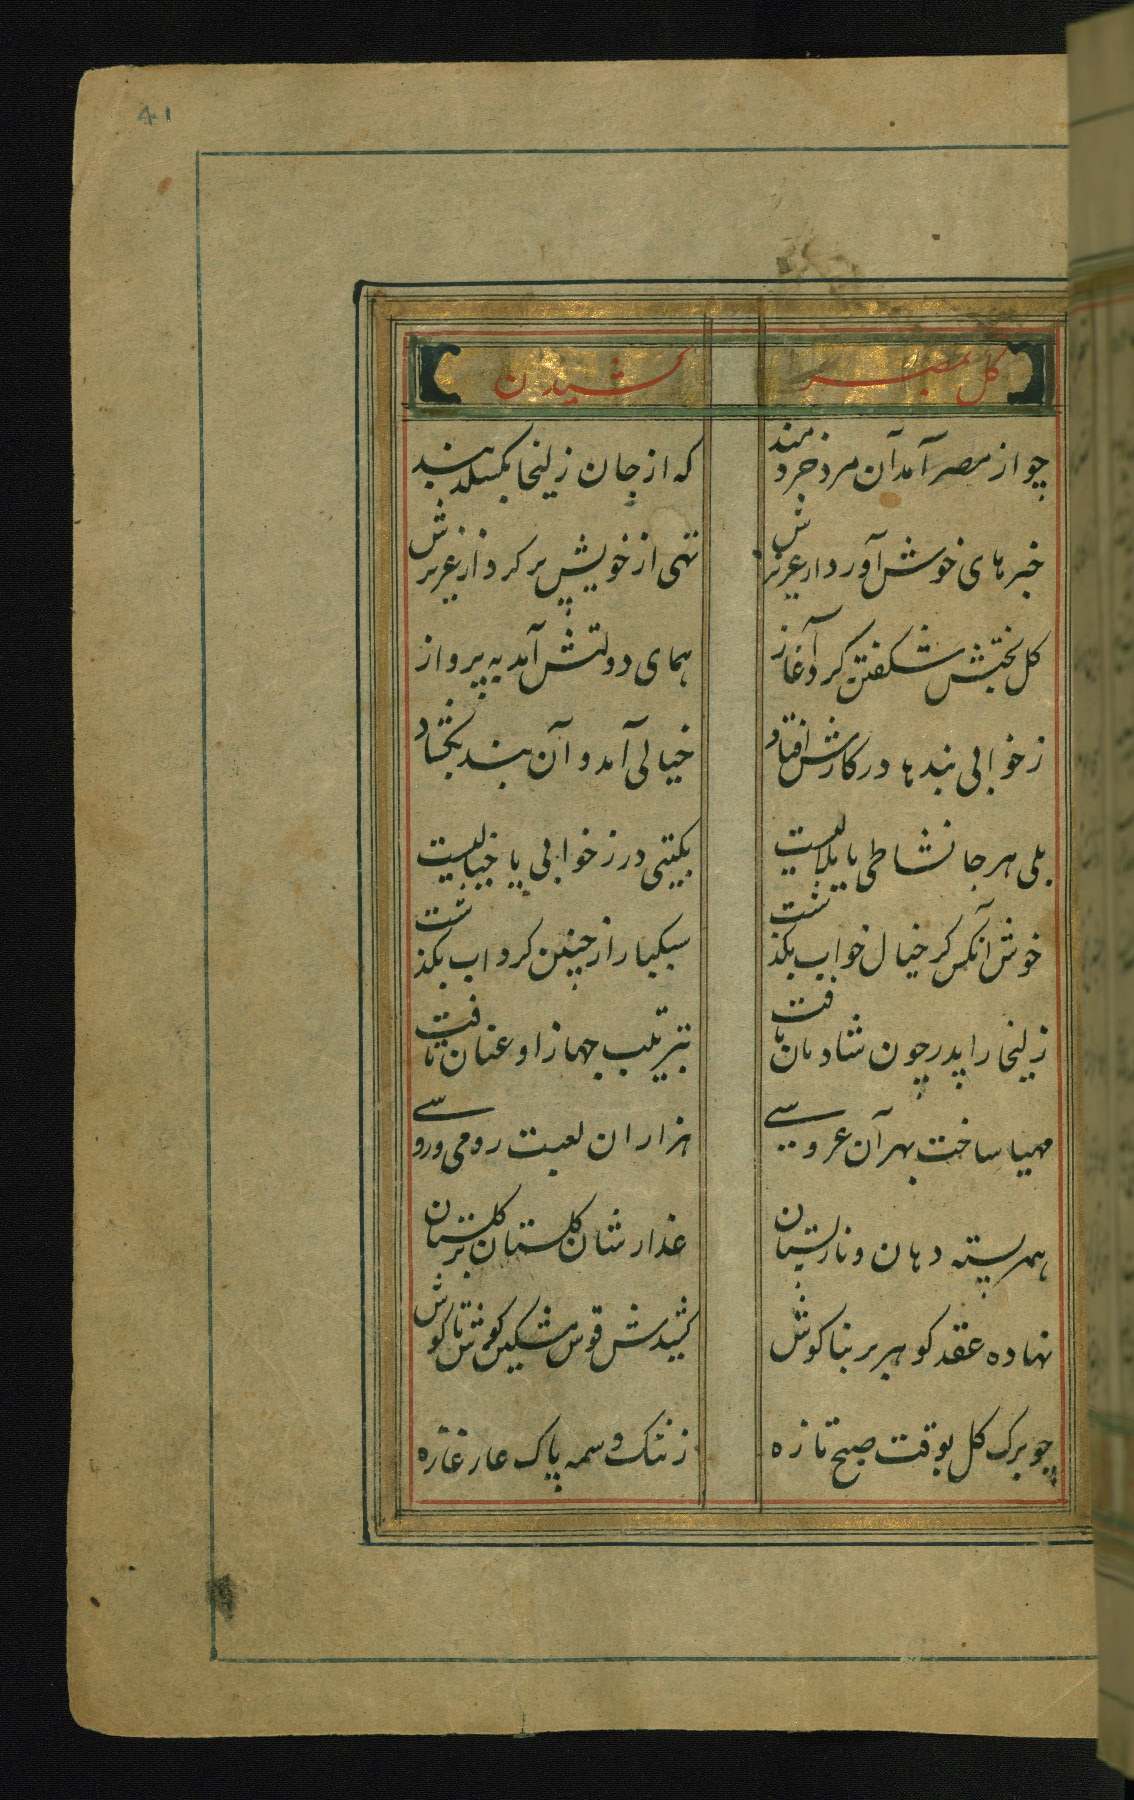 41
کل بمصر کشیدن
چو از مصر آمد آن مرد خردمند که از جان زلیخا بکسلد بند
خبرهای خوش آورد از عزیزش تهی از خویش پر کرد از عزیزش
کل بختش شکفتن کرد آغاز همای دولتش آمد به پرواز
ز خوابی بندها در کارش افتاد خیالی آمد و آن بند بکشاد
بلی هر جا نشاطی یا ملالیست بکیتی در ز خوابی یا خیالیست
خوش آنکس کز خیال خواب بکذشت سبکبار از چنین کرداب بکذشت
زلیخا را پدر چون شادمان یافت بترتیب جهاز او عنان تافت
مهیا ساخت بهر آن عروسی هزاران لعبت رومی وروسی
همه پسته دهان و نار پستان عذارشان کلستان بر کلستان
نهاده عقد کوهر بر بناکوش کشیدش قوس مشکین کوش تا کوش
چو برک کل بوقت صبح تازه ز ننک وسمه پاک عار غازه